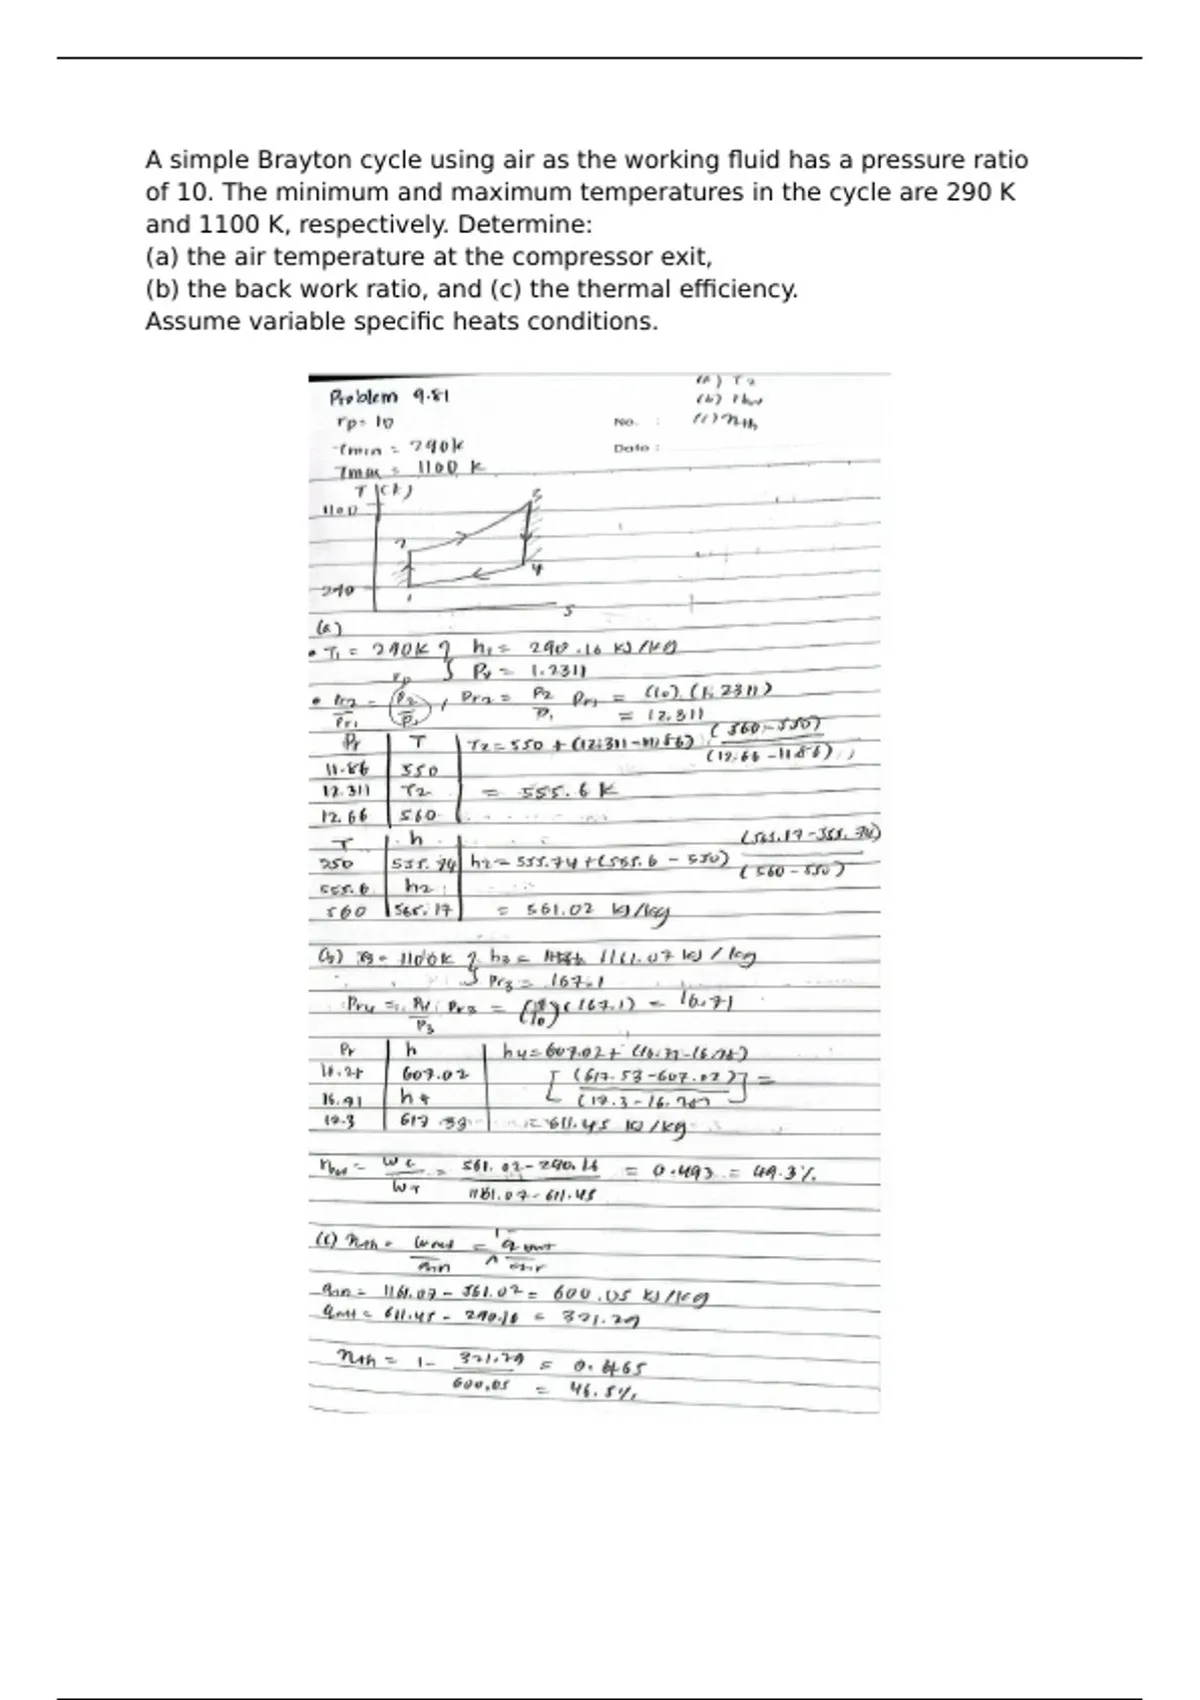 A simple Brayton cycle using air as the working fluid has a pressure ratio
of 10. The minimum and maximum temperatures in the cycle are 290 K
and 1100 K, respectively. Determine:
(a) the air temperature at the compressor exit,
(b) the back work ratio, and (c) the thermal efficiency.
Assume variable specific heats conditions.
(a) T2
Problem 9.81
(b)
rp = 10
No. :
(c) nth
Tmin = 290k
Date :
Tmax = 1100 k
T (k)
1100
3
2
4
290
1
s
(a)
• T1 = 290k } h1 = 290.16 kJ/kg
Pr = 1.2311
rp
• Pr2/Pr1 = (P2/P1), Pr2 = P2/P1 Pr1 = (10).(1.2311)
= 12.311
Pr T T2 = 550 + (12.311-11.86) (560-550)/(12.66-11.86)
11.86 550
12.311 T2 = 555.6 K
12.66 560
T h
550 555.74 h2 = 555.74 + (555.6 - 550) (565.17-555.74)/(560-550)
555.6 h2
560 565.17 = 561.02 kJ/kg
(b) T3 = 1100k } h3 = 1161.07 kJ/kg
Pr3 = 167.1
Pr4 = P4/P3 Pr3 = (1/10)(167.1) = 16.71
Pr h h4 = 607.02 +
607.02 [(617.53-607.02)] =
h4
17.3 617.53 = 611.45 kJ/kg
= wc/wT = 561.02-290.16/1161.07-611.45 = 0.493 = 49.3%
(c) nth = wnet/qin = 1 - qout/qin
qin = 1161.07 - 561.02 = 600.05 kJ/kg
qout = 611.45 - 290.16 = 321.29
nth = 1 - 321.29/600.05 = 0.465
= 46.5%